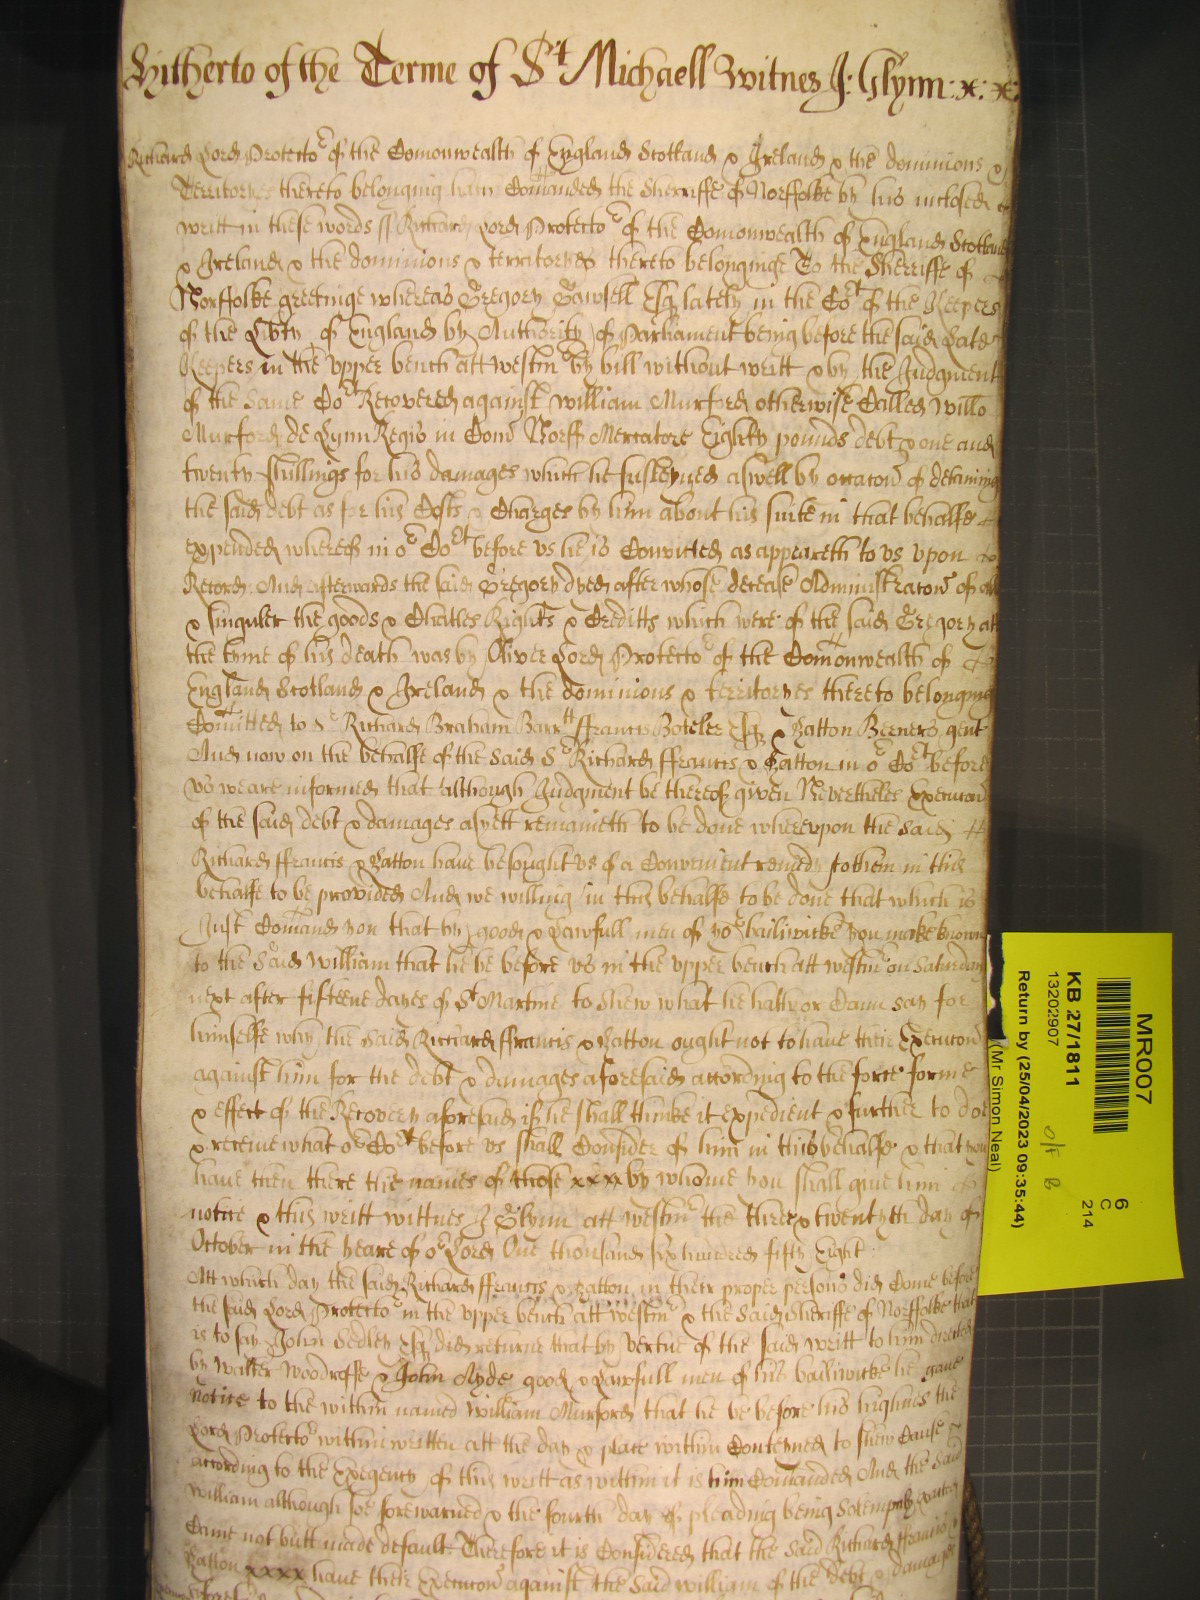 Hitherto of the Terme of St Michaell Witnes J: Glynn: x: x:
Richard Lord Protector of the Comonwealth of England Scotland & Ireland & the dominions &
Territories thereto belonging hath Comanded the Sherriffe of Norffolke by his inclosed
writt in these words // Richard Lord Protector of the Comonwealth of England Scotland
& Ireland & the dominions & territoryes thereto belonginge To the Sherriffe of
Norffolke greetinge whereas Gregory Gawsell Esq lately in the Cort of the Keepers
of the Libty of England by Authority of Parliament being before the said Late
Keepers in the upper bench att westmr by bill without writt & by the Judgment
of the same Cort Recovered against William Murford otherwise Called Willo
Murford de Lynn Regis in Com Norff Mercatore Eighty pounds debt & one and
twenty shillings for his damages which he susteyned aswell by occacon of detaining
the said debt as for his Costs & Charges by him about his suite in that behalfe
expended whereof in or Cort before us he is Convicted as appeareth to us upon
Record And afterwards the said Gregory dyed after whose decease Administracon of all
& singuler the goods & Chatles Rights & Creditts which were of the said Gregory att
the tyme of his death was by Oliver Lord Protector of the Comonwealth of
England Scotland & Ireland & the dominions & territoryes thereto belonging
Comitted to Sr Richard Braham Barrtt ffrancis Boteler Esq & Hatton Berners gent
And now on the behalfe of the said Sr Richard ffrancis & Hatton in or Cort before
us we are informed that although Judgment be thereof given Neverthelesse Execucon
of the said debt & damages as yett remaineth to be done whereupon the said
Richard ffrancis & Hatton have besought us of a Convenient remedy to them in this
behalfe to be provided And we willing in this behalfe to be done that which is
Just Comand you that by good & Lawfull men of yor bailiwicke you make known
to the said William that he be before us in the upper bench att westmr on Saturday
next after fifteene dayes of St Martine to shew what he hath or Cann say for
himselfe why the said Richard ffrancis & Hatton ought not to have their Execucon
against him for the debt & damages aforesaid according to the force forme
& effect of the Recovery aforesaid if he shall thinke it expedient & further to doe
& receive what or Cort before us shall Consider of him in this behalfe & that you
have then there the names of those xxxx by whome you shall give him
notice & this writt wittnes J Glynn att westmr the three & twentyth day of
October in the yeare of or Lord One thousand six hundred fifty Eight
Att which day the said Richard ffrancis & Hatton in their proper persons did Come before
the said Lord Protector in the upper bench att westmr & the said Sheriffe of Norffolke that
is to say John Sedley Esq did returne that by vertue of the said writt to him directed
by Walter Woodroffe & John Ayde good & Lawfull men of his bailiwicke he gave
notice to the within named William Murford that he be before his highnes the
Lord Protector within written att the day & place within Conteyned to shew Cause
according to the Exegency of this writt as within it is him Comanded And the said
William although soe forewarned & the fourth day of pleading being Solempnly
Came not butt made default Therefore it is Considered that the said Richard ffrancis &
Hatton xxxx have their Execucon against the said William of the debt & damages
MR007
KB 27/1811
13202907
Return by (25/04/2023 09:35:44)
(Mr Simon Neal)
6
C
214